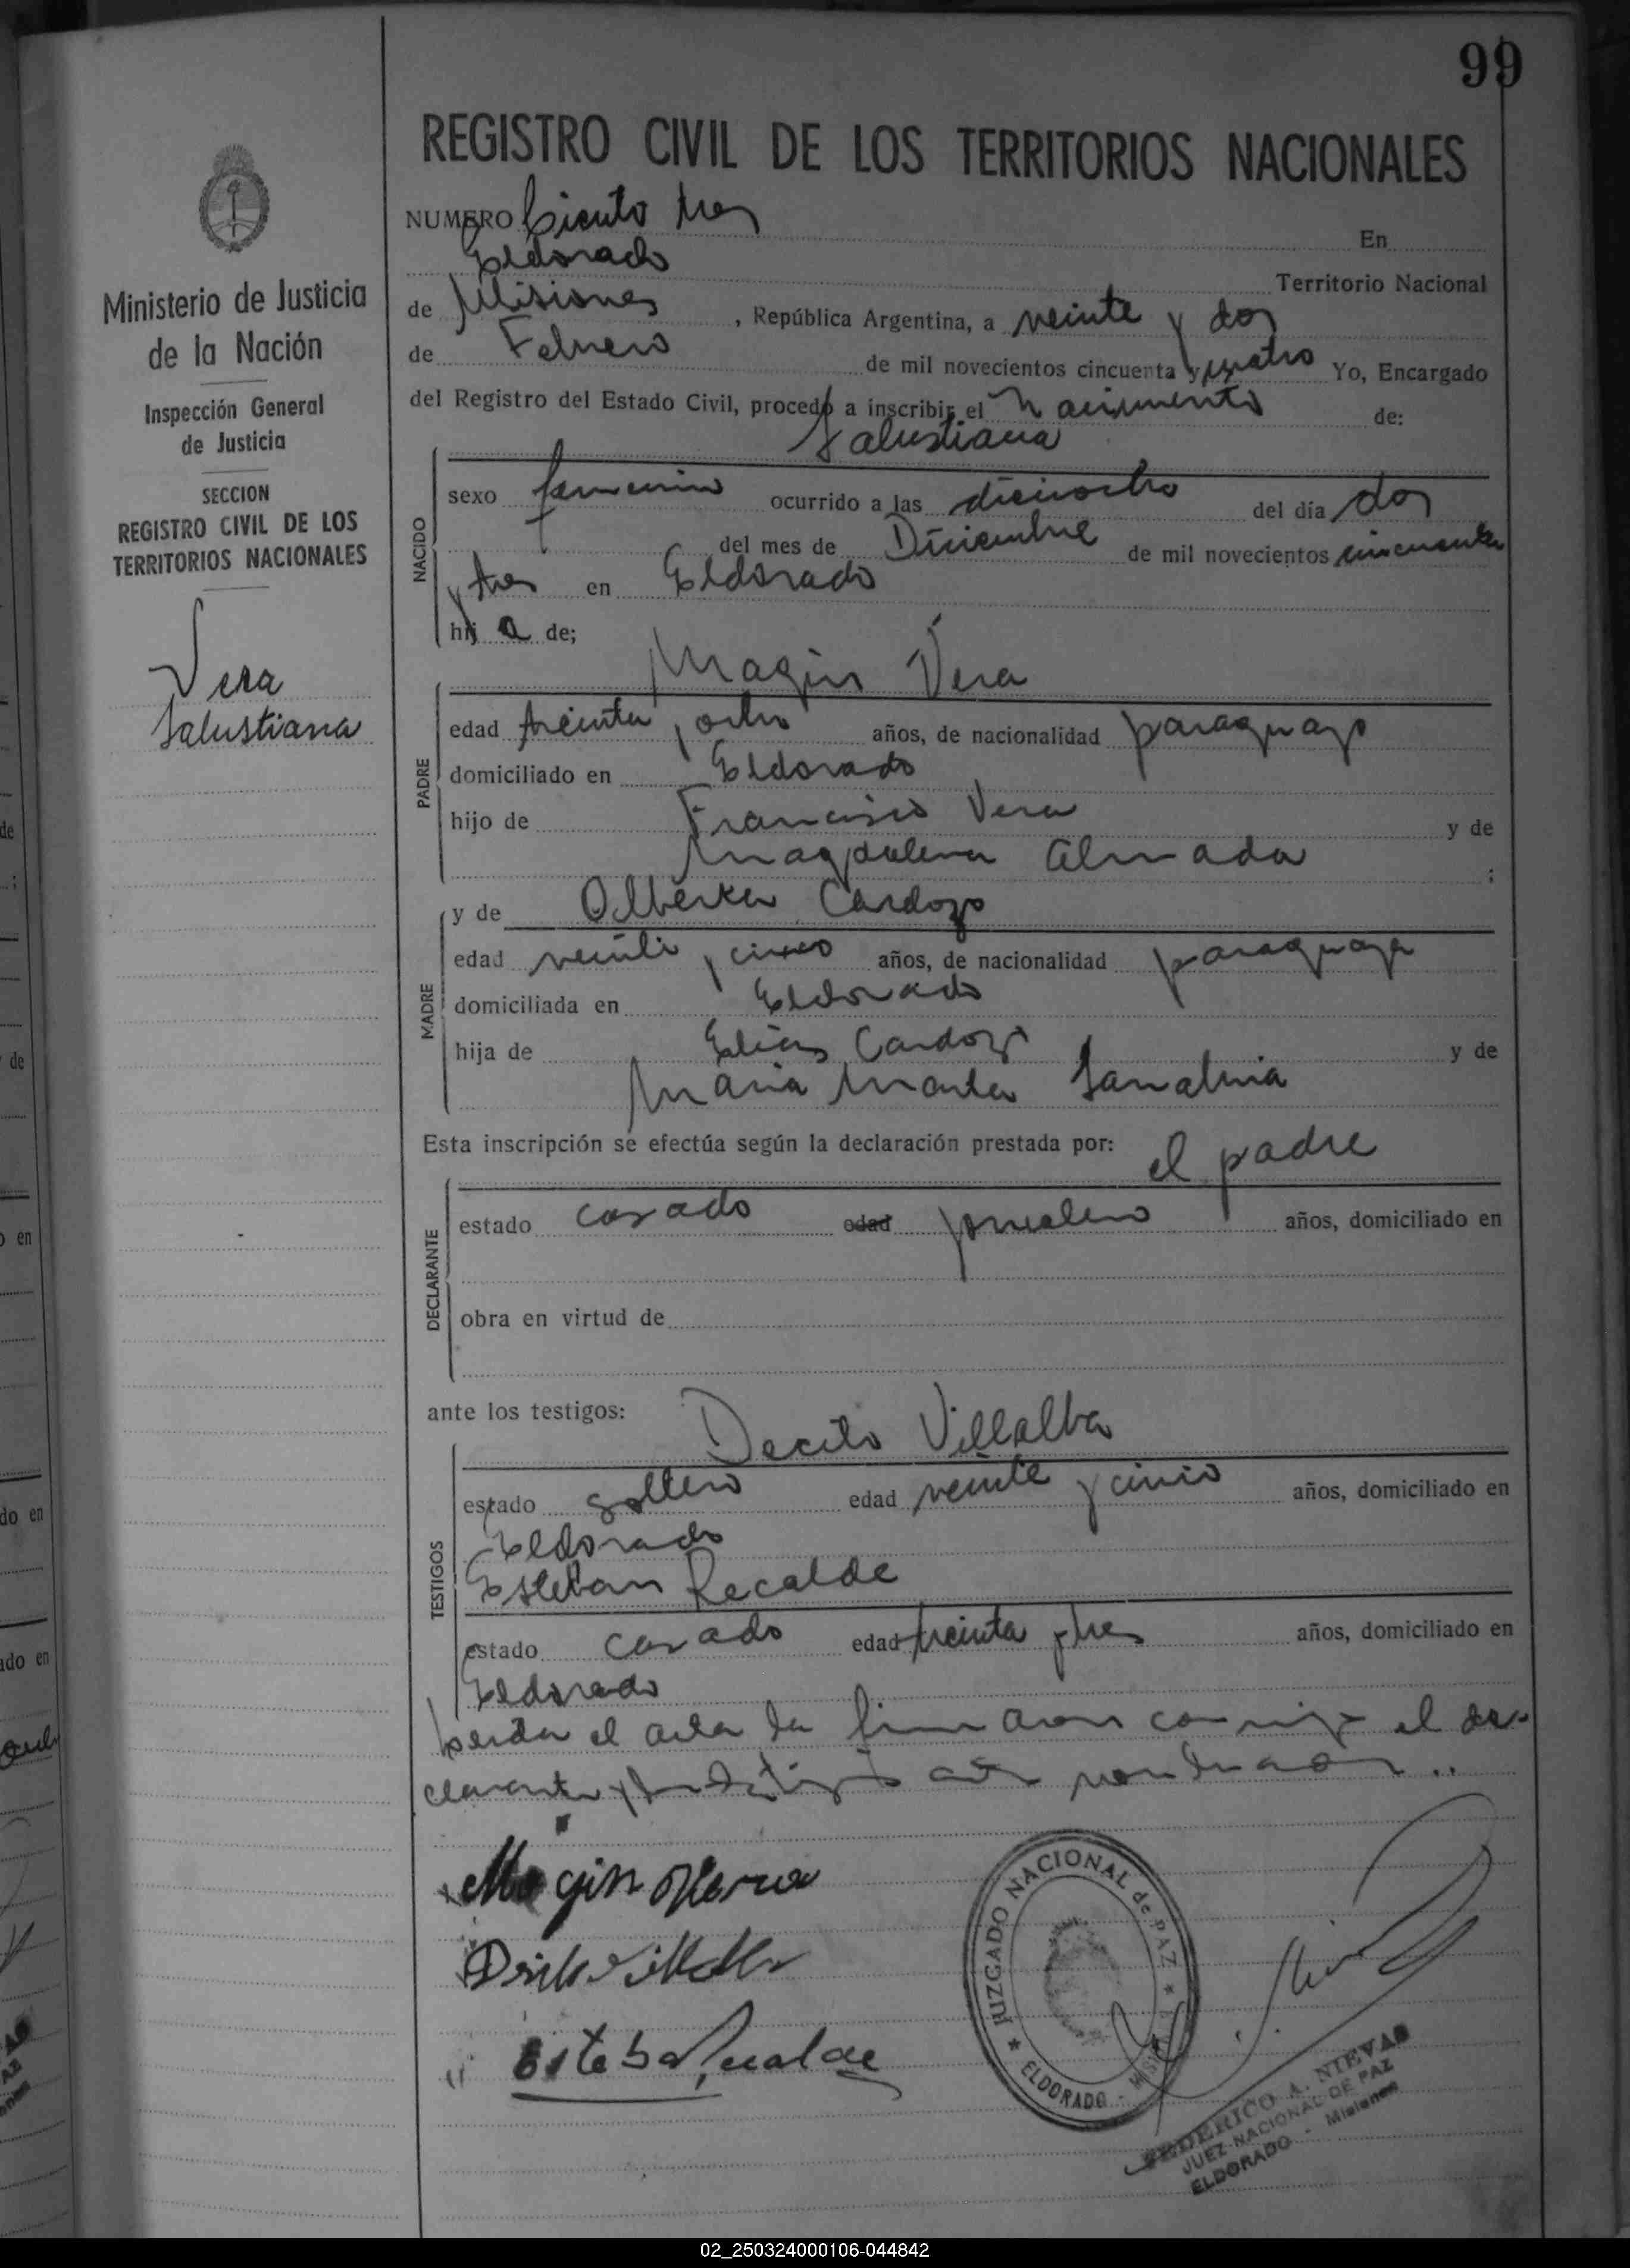 99
REGISTRO CIVIL DE LOS TERRITORIOS NACIONALES
Ministerio de Justicia
de la Nación
Inspección General
de Justicia
SECCION
REGISTRO CIVIL DE LOS
TERRITORIOS NACIONALES
Vera
Salustiana
NUMERO Ciento tres En
Eldorado Territorio Nacional
de Misiones, República Argentina, a veinte y dos
de Febrero de mil novecientos cincuenta y cuatro Yo, Encargado
del Registro del Estado Civil, procedo a inscribir el nacimiento de:
Salustiana
NACIDO
sexo femenino ocurrido a las dieciocho del día dos
del mes de Diciembre de mil novecientos cincuenta
y tres en Eldorado
hija de;
Magin Vera
PADRE
edad treinta y ocho años, de nacionalidad paraguayo
domiciliado en Eldorado
hijo de Francisco Vera y de
Magdalena Almada ;
MADRE
y de Alberta Cardozo
edad veinte y cinco años, de nacionalidad paraguaya
domiciliada en Eldorado
hija de Elias Cardozo y de
Maria Marta
Esta inscripción se efectúa según la declaración prestada por: el padre
DECLARANTE
estado casado edad años, domiciliado en
obra en virtud de
ante los testigos: Villalba
TESTIGOS
estado soltero edad veinte y cinco años, domiciliado en
Eldorado
Esteban Recalde
estado casado edad treinta y tres años, domiciliado en
Eldorado
el acta la firmaron conmigo el de-
clarante y los testigos
Magin Vera
Esteba Recalde
JUZGADO NACIONAL de PAZ
ELDORADO - MISIONES
FEDERICO A. NIEVAS
JUEZ NACIONAL DE PAZ
ELDORADO - Misiones
02_250324000106-044842